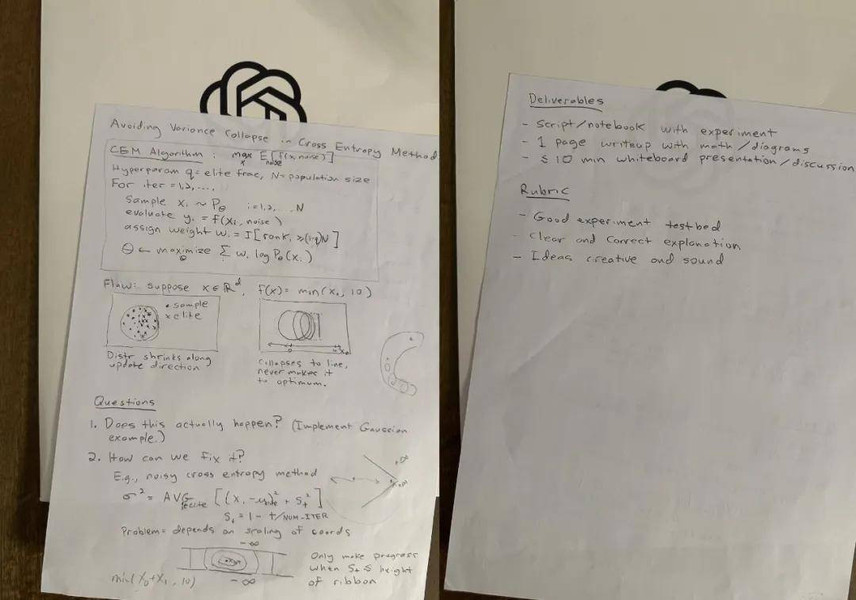 Avoiding Variance Collapse in Cross Entropy Method
CEM Algorithm: max_x E_noise[f(x, noise)]
Hyperparam q = elite frac, N = population size
For iter = 1,2,....
Sample x_i ~ P_θ i=1,2,...N
evaluate y_i = f(x_i, noise)
assign weight w_i = I[rank_i ≥ (1-q)N]
θ ← maximize_θ Σ w_i log P_θ(x_i)
Flaw: suppose x ∈ ℝ^d, f(x) = min(x_1, 10)
• sample
x elite
Distr shrinks along
update direction
Collapses to line,
never makes it
to optimum.
Questions
1. Does this actually happen? (Implement Gaussian
example.)
2. How can we fix it?
E.g., noisy cross entropy method
σ² = AVG_elite [(x_i - μ)² + S_t²]
S_t = 1 - t/NUM-ITER
Problem: depends on scaling of coords
-∞
-∞
Only make progress
when S_t ≤ height
of ribbon
Deliverables
- Script/notebook with experiment
- 1 page writeup with math/diagrams
- ≤ 10 min whiteboard presentation/discussion
Rubric
- Good experiment testbed
- Clear and correct explanation
- Ideas creative and sound